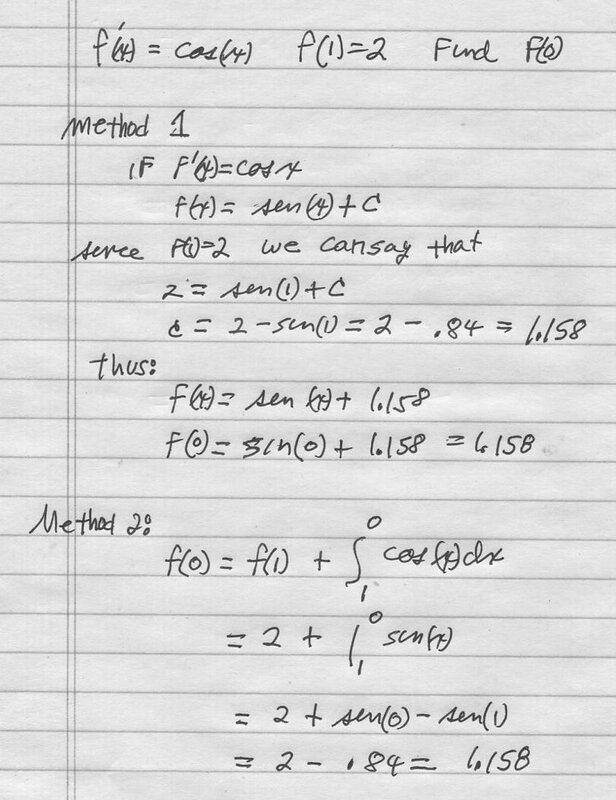 f'(x) = cos(x) f(1)=2 Find f(0)
Method 1
if f'(x)=cos x
f(x) = sin(x) + C
since f(1)=2 we can say that
2 = sin(1) + C
C = 2 - sin(1) = 2 - .84 = 1.158
thus:
f(x) = sin(x) + 1.158
f(0) = sin(0) + 1.158 = 1.158
Method 2:
f(0) = f(1) + ∫₁⁰ cos(x)dx
= 2 + |₁⁰ sin(x)
= 2 + sin(0) - sin(1)
= 2 - .84 = 1.158